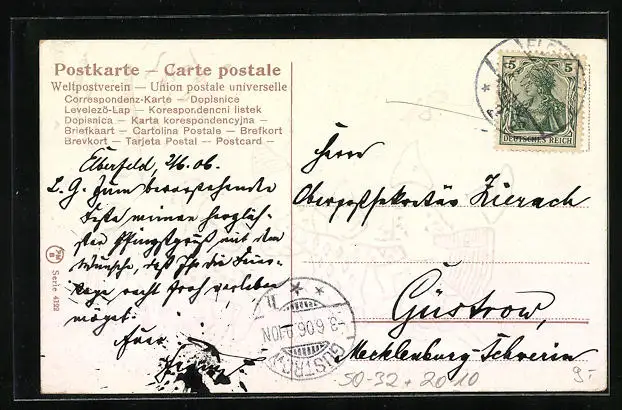 Postkarte – Carte postale
Weltpostverein – Union postale universelle
Correspondenz-Karte – Dopisnice
Levelező-Lap – Korespondencni listek
Dopisnica – Karta korespondencyjna –
Briefkaart – Cartolina Postale – Brefkort
Brevkort – Tarjeta Postal – Postcard –
Elberfeld, 2/6.06.
L. G. Zum bevorstehenden
Feste meinen herzlich-
sten Pfingstgruß mit dem
Wunsche, daß Ihr die Feier-
tage recht froh verleben
möget.
Euer
PM
B
Serie 4122
5 5
DEUTSCHES REICH
Herrn
Oberpostsekretär Zierach
Güstrow,
Mecklenburg-Schwerin
GÜSTROW
3.6.06. 9-10N
50-32+2010
9.-